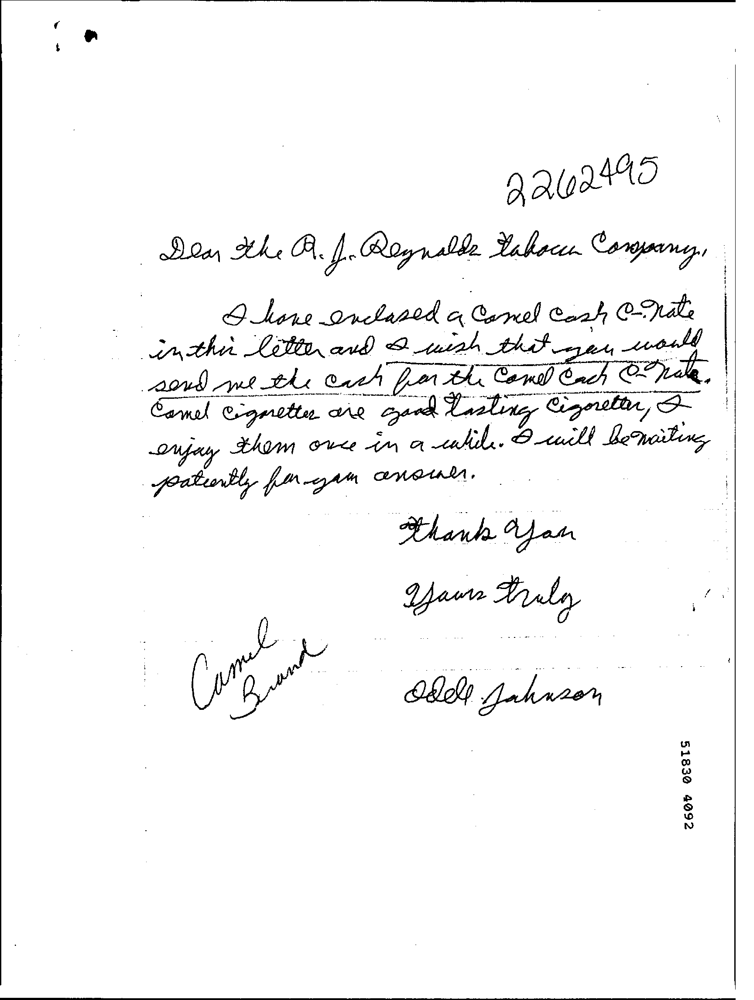 2262495
Dear the R. J. Reynolds Tabacco Company,
I have enclosed a Camel Cash C-Note
in this letter and I wish that you would
send me the cash for the Camel Cach C-Note.
Camel Cigarettes are good tasting Cigarettes, I
enjoy them once in a while. I will be waiting
patiently for your answer.
Thank You
Yours truly
Odell Johnson
Camel
Brand
51830 4092